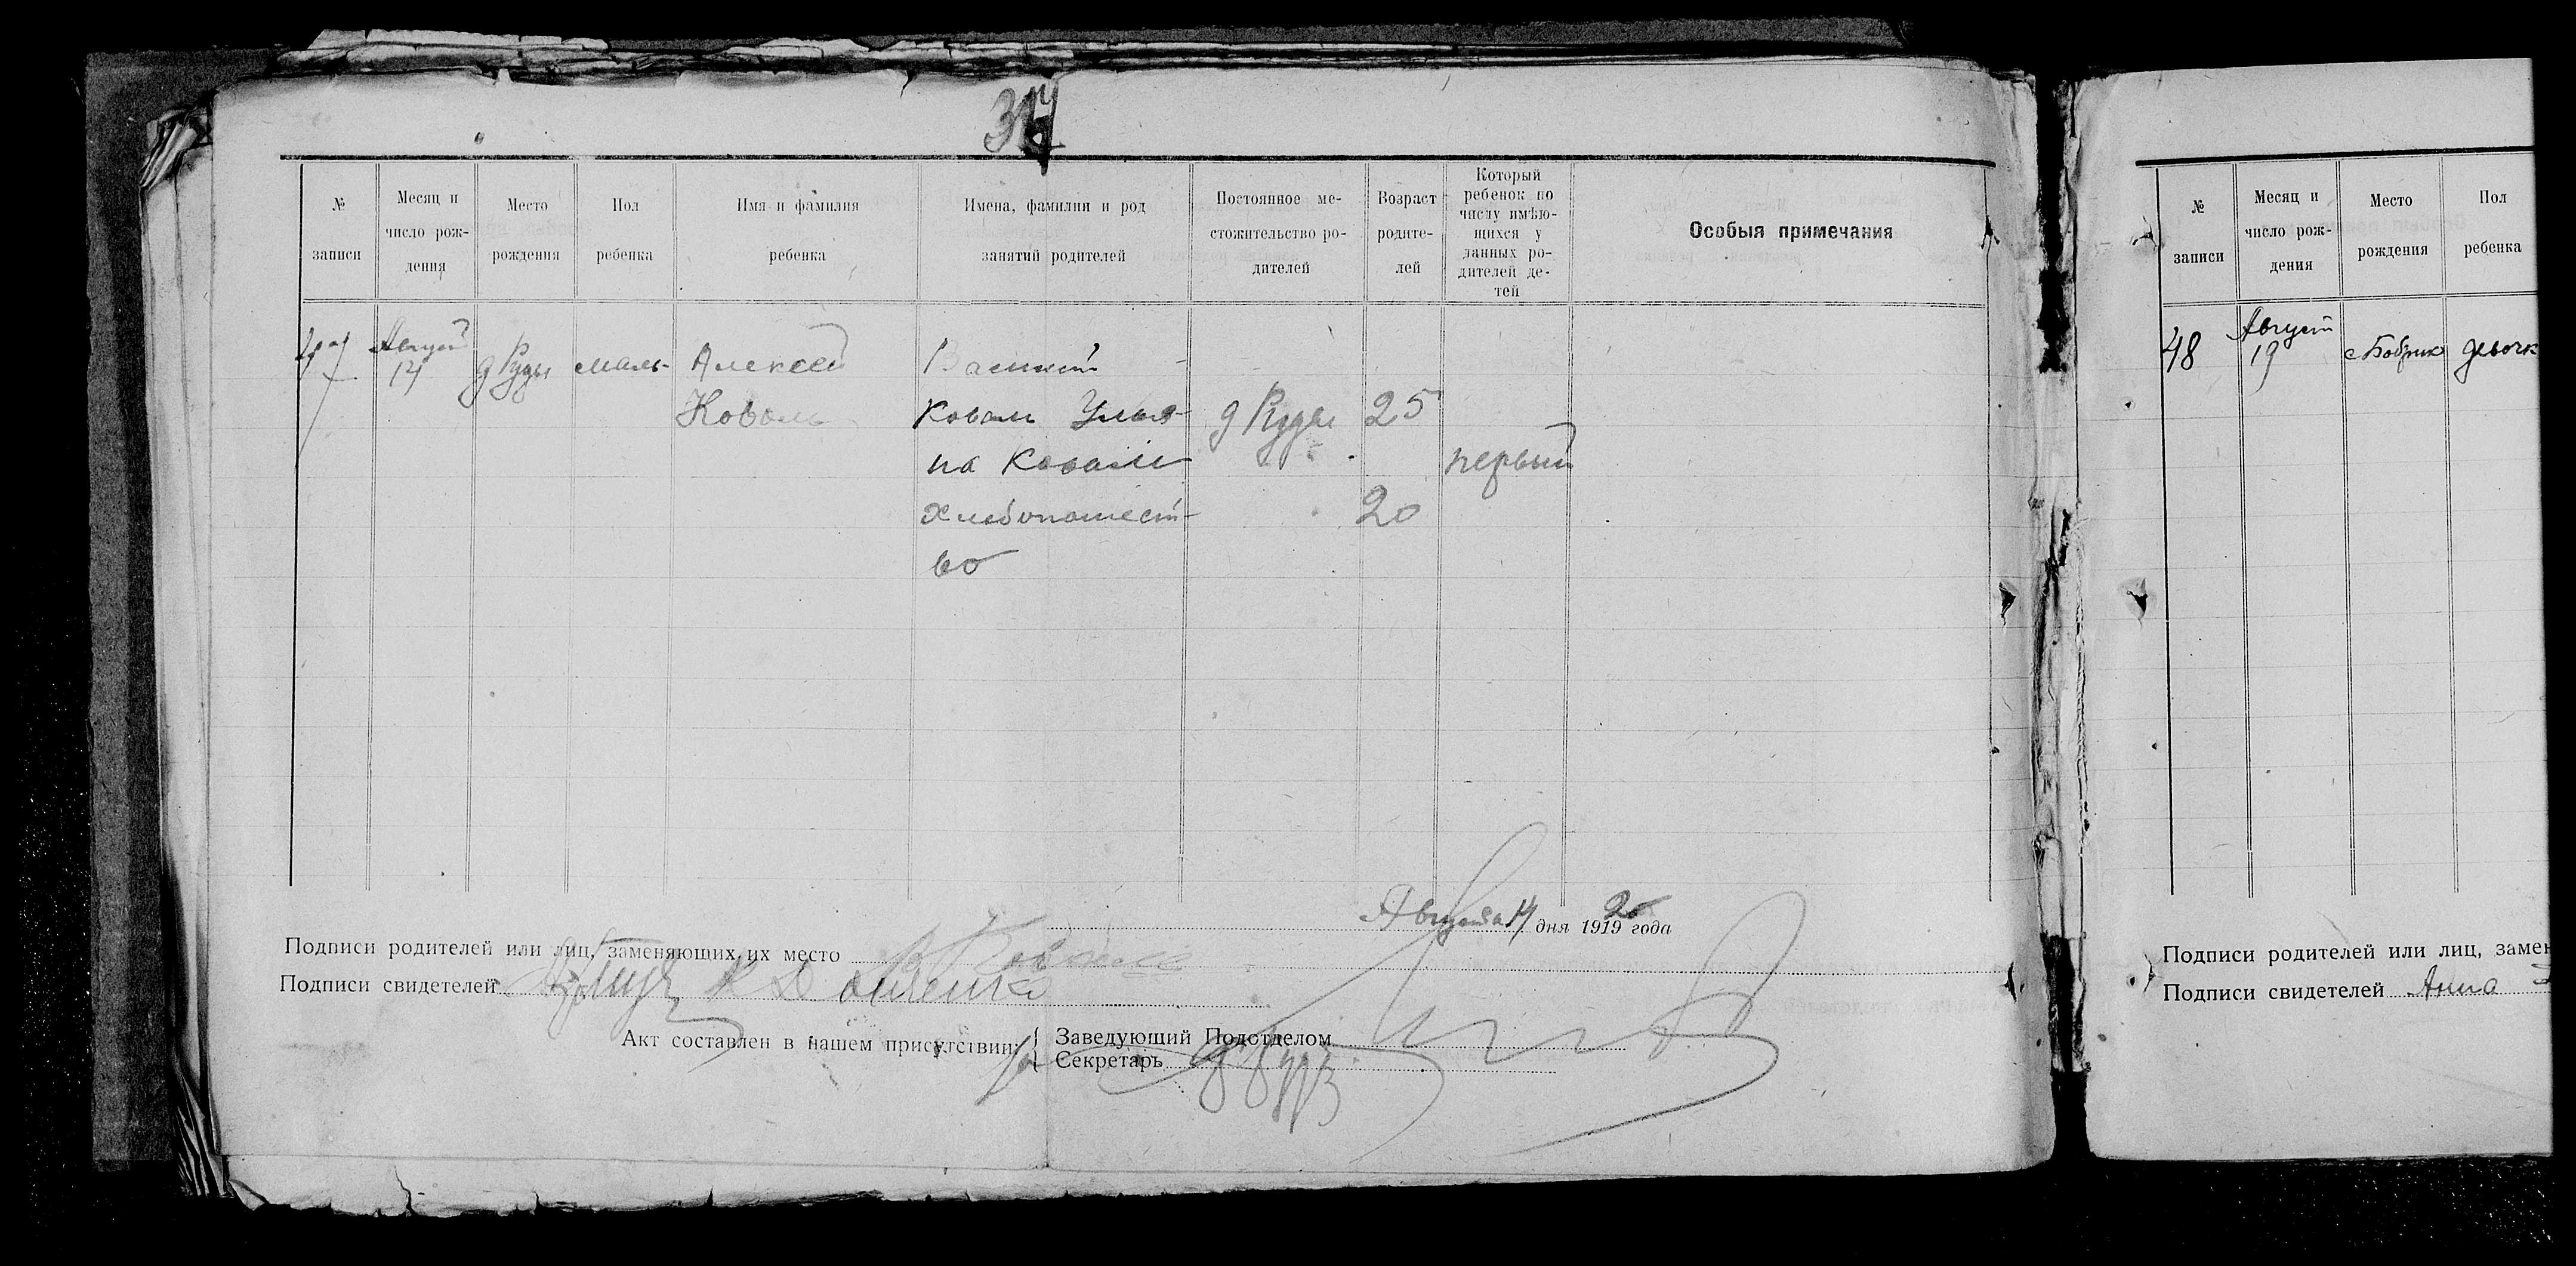 № записи
Месяц и число рож-дения
Место рождения
Пол ребенка
Имя и фамилия ребенка
Имена, фамилии и род занятий родителей
Постоянное ме-стожительство ро-дителей
Возраст родите-лей
Который ребенок по числу имѣю-щихся у данных ро-дителей де-тей
Особыя примечания
47
Август 14
д Руды
маль-
Алексей
Коваль
Василий
Коваль Улья-
на Коваль
Хлебопашест-
во
д Руды
25
20
первый
Августа 14 дня 1919 20 года
Подписи родителей или лиц, заменяющих их место Коваль
Подписи свидетелей
Акт составлен в нашем присутствии:
Заведующий Подотделом
Секретарь
№ записи
Месяц и число рож-дения
Место рождения
Пол ребенка
48
Август 19
с Бобрик
девочк
Подписи родителей или лиц, замен
Подписи свидетелей Анна